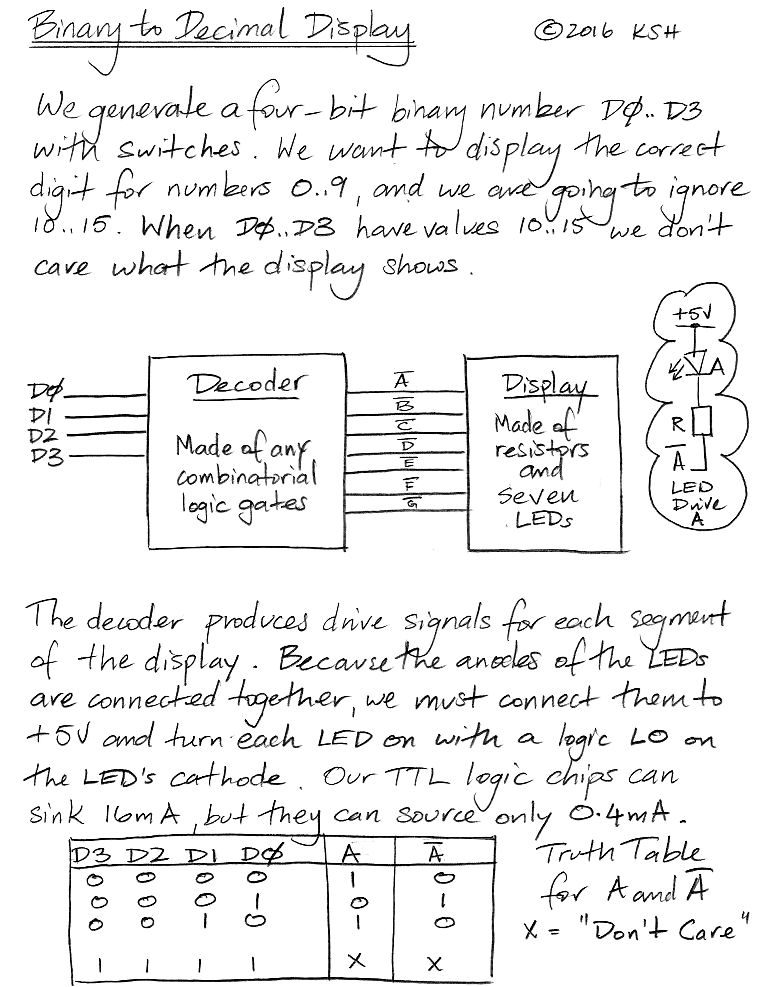 Binary to Decimal Display
©2016 KSH
We generate a four-bit binary number DØ..D3
with switches. We want to display the correct
digit for numbers 0..9, and we are going to ignore
10..15. When DØ..D3 have values 10..15 we don't
care what the display shows.
DØ
D1
D2
D3
Decoder
Made of any
combinatorial
logic gates
A̅
B̅
C̅
D̅
E̅
F̅
G̅
Display
Made of
resistors
and
Seven
LEDs
+5V
A
R
A̅
LED
Drive
A
The decoder produces drive signals for each segment
of the display. Because the anodes of the LEDs
are connected together, we must connect them to
+5V and turn each LED on with a logic LO on
the LED's cathode. Our TTL logic chips can
sink 16mA, but they can source only 0.4mA.
D3 D2 D1 DØ A A̅
0 0 0 0 1 0
0 0 0 1 0 1
0 0 1 0 1 0
1 1 1 1 X X
Truth Table
for A and A̅
X = "Don't Care"